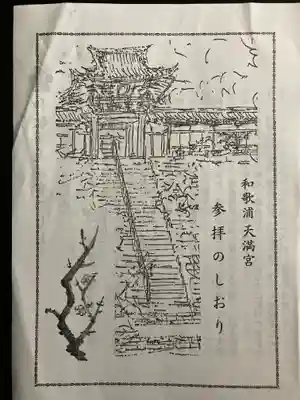 和歌浦 天満宮
参拝のしおり